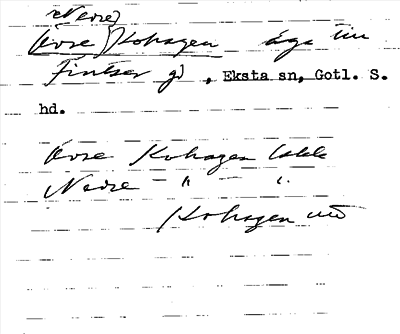 Nedre
Övre Kohagen äga till
g), Eksta sn, Gotl. S.
hd.
Övre Kohagen
Nedre " "
Kohagen